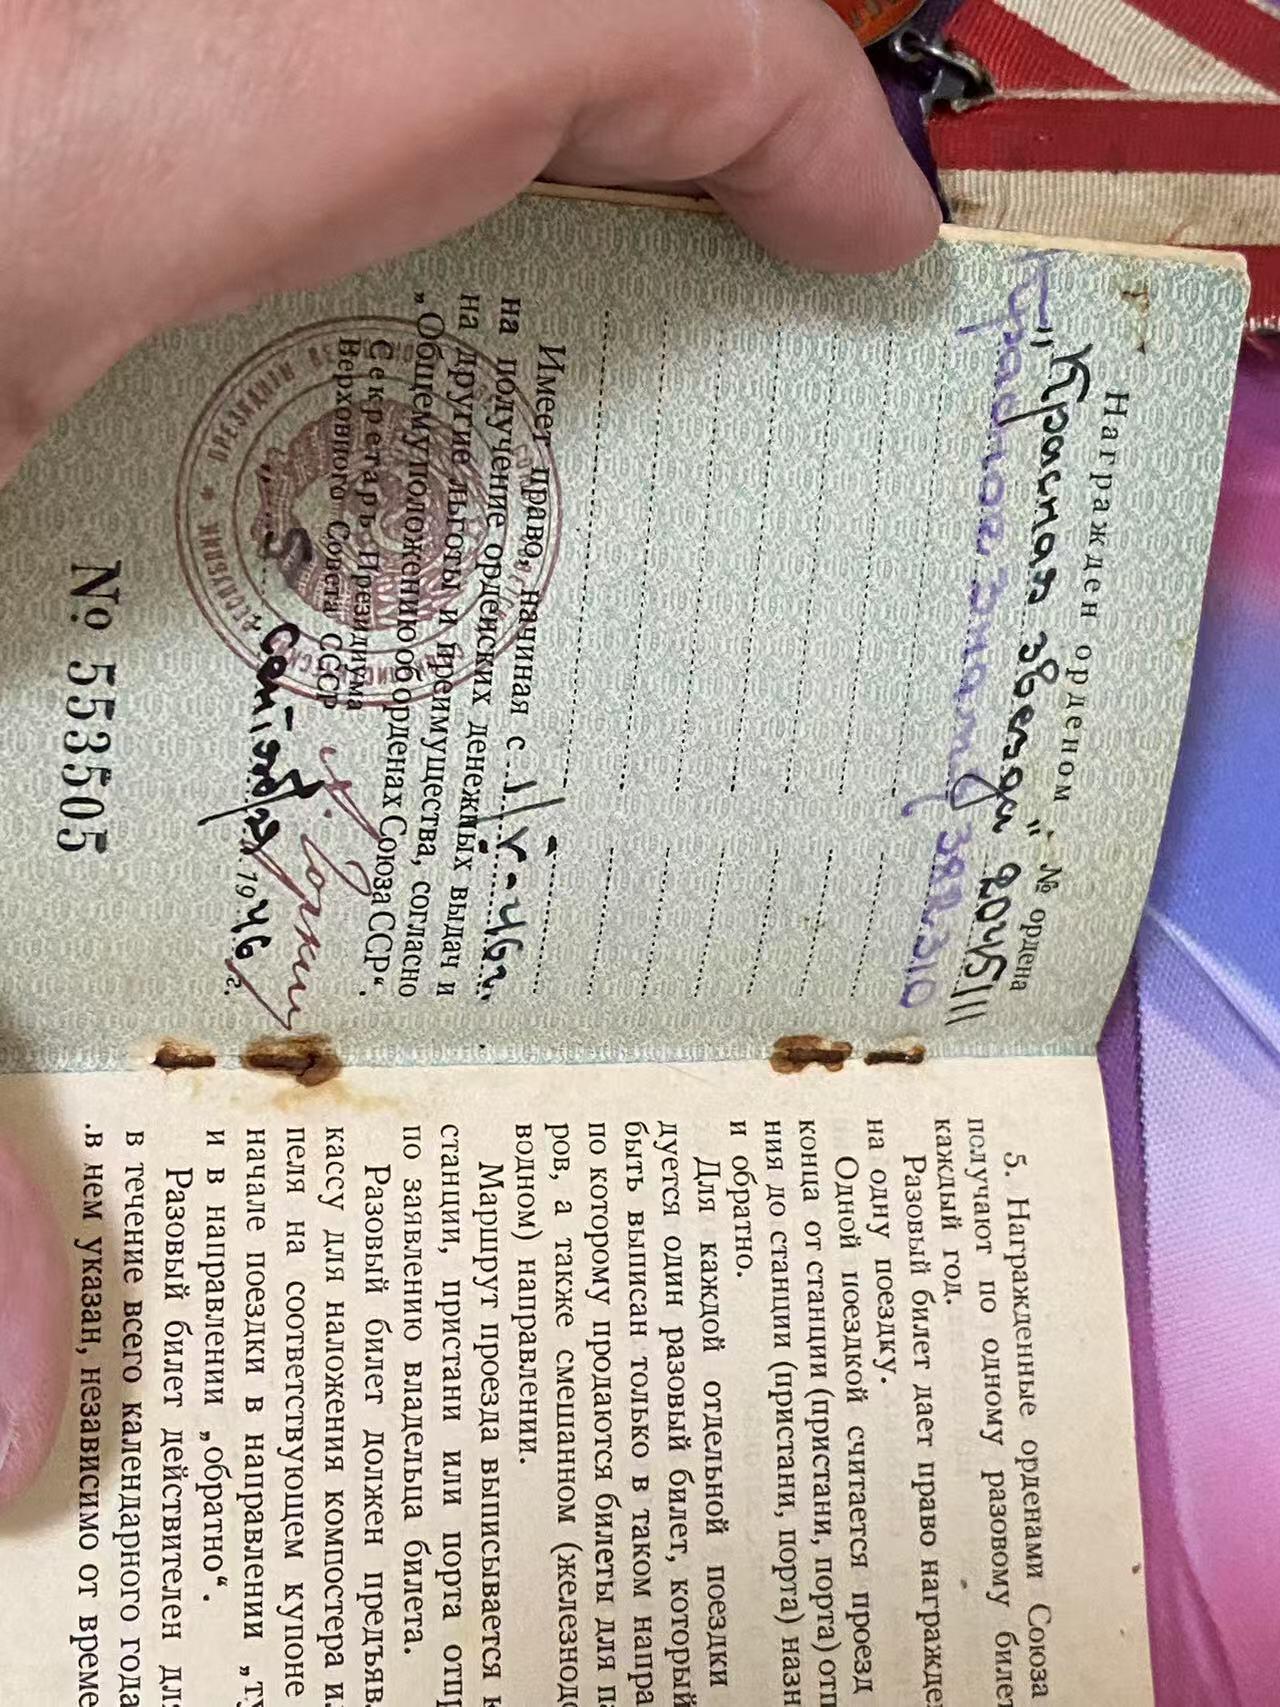 Награжден орденом № ордена
„Красная звезда“ 2045111
Красное Знамя 382310
Имеет право, начиная с 1/V-46 г.
на получение орденских денежных выдач и
на другие льготы и преимущества, согласно
„Общему положению об орденах Союза ССР“.
Секретарь Президиума
Верховного Совета СССР
„5“ сентября 1946 г.
№ 553505
5. Награжденные орденами Союза
получают по одному разовому билет
каждый год.
Разовый билет дает право награжде
на одну поездку.
Одной поездкой считается проезд
конца от станции (пристани, порта) отп
ния до станции (пристани, порта) назн
и обратно.
Для каждой отдельной поездки
дуется один разовый билет, который
быть выписан только в таком напра
по которому продаются билеты для па
ров, а также смешанном (железнодо
водном) направлении.
Маршрут проезда выписывается
станции, пристани или порта отпр
по заявлению владельца билета.
Разовый билет должен предъяв
кассу для наложения компостера ил
пеля на соответствующем купоне
начале поездки в направлении „ту
и в направлении „обратно“.
Разовый билет действителен дл
в течение всего календарного года
в нем указан, независимо от време